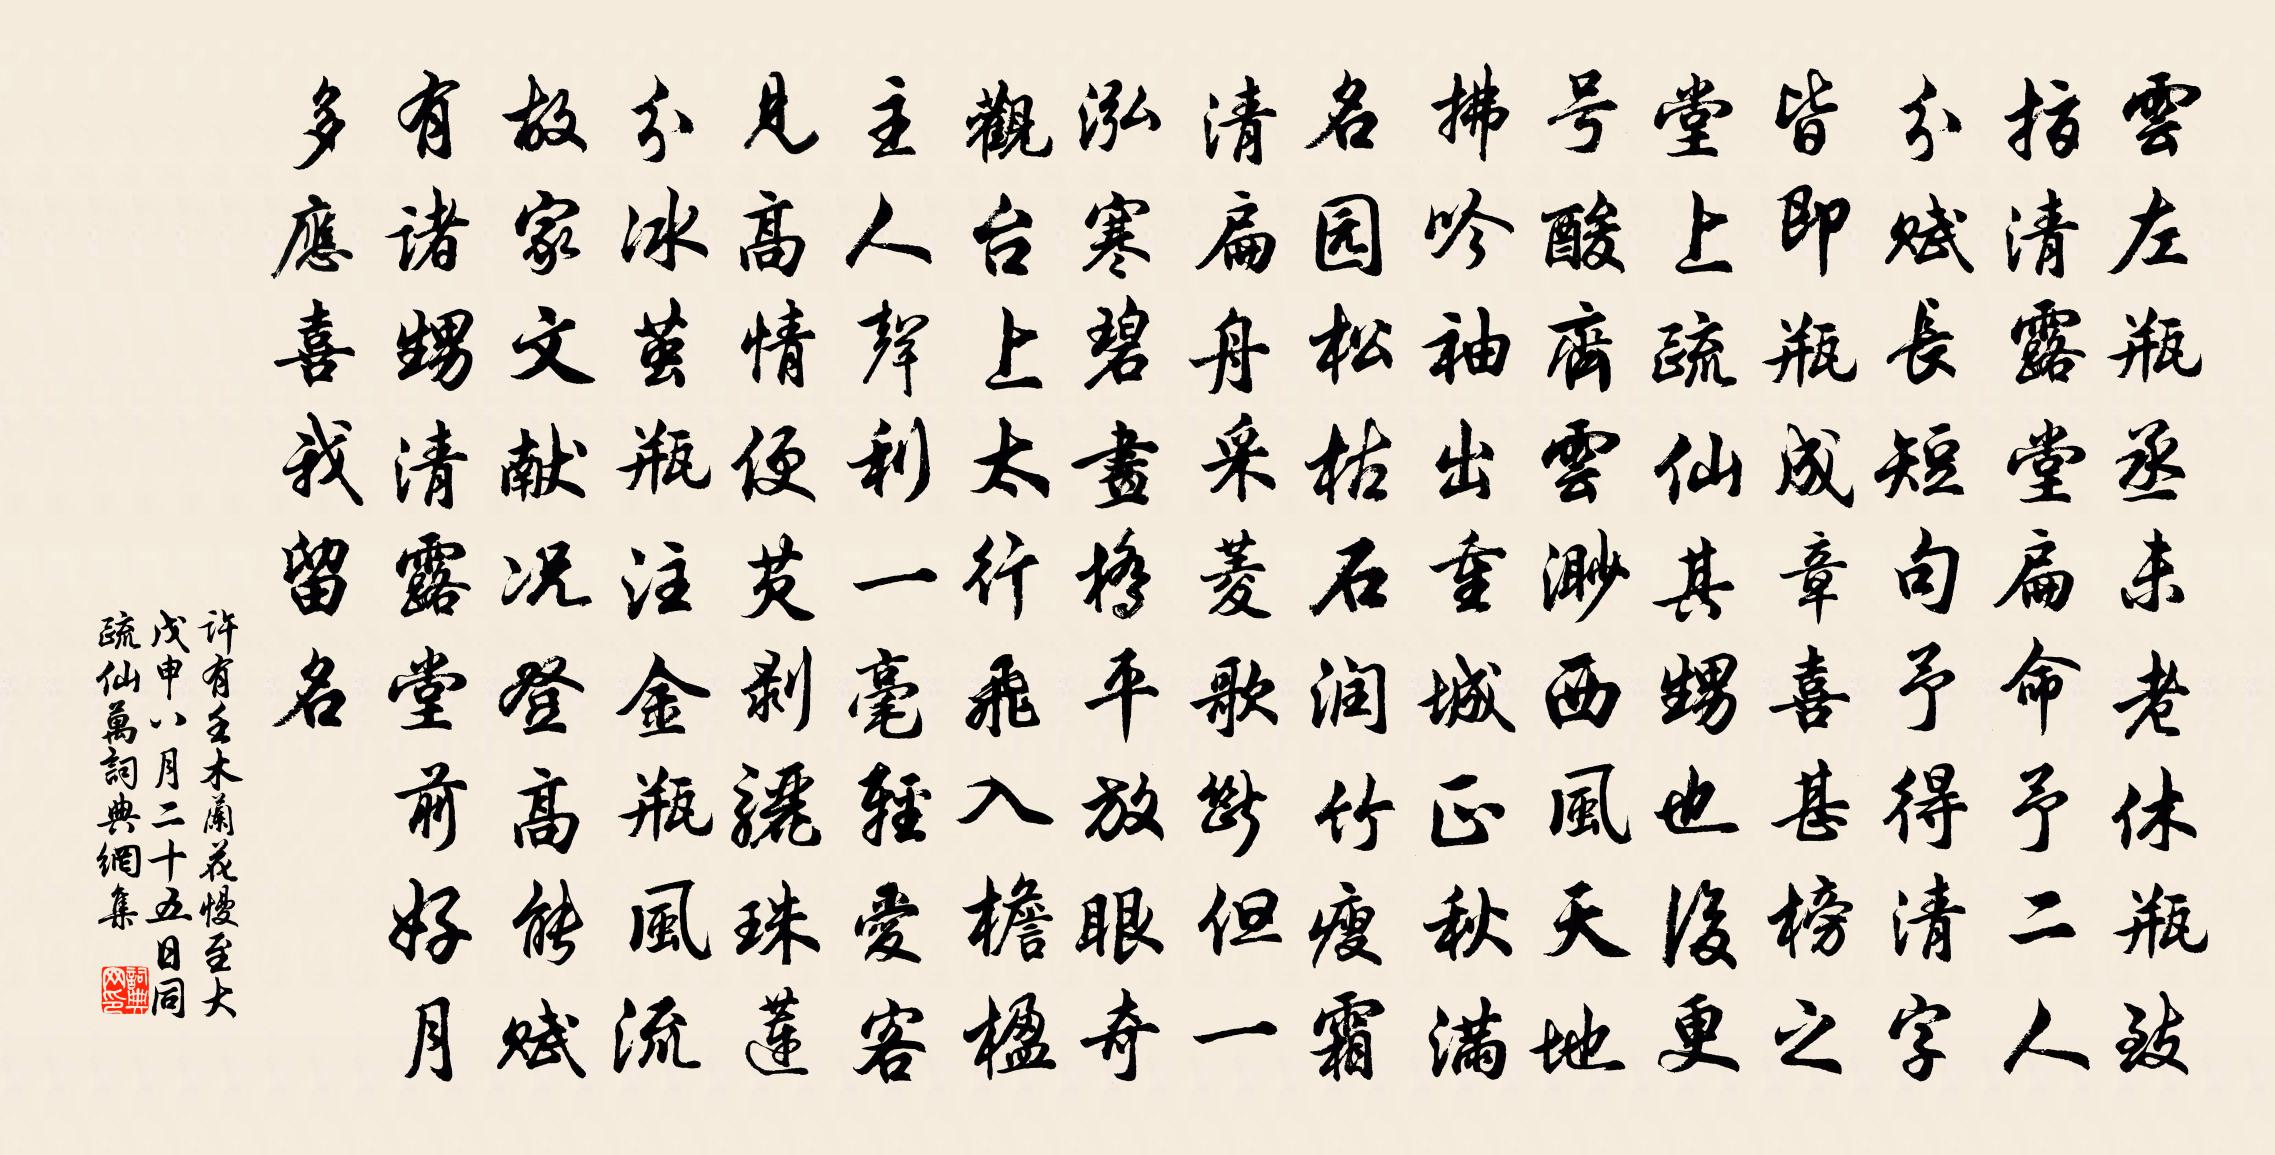 雲左瓶丞未老休瓶致
指清露堂扁命予二人
分赋長短句予得清字
皆即瓶成章喜甚榜之
堂上疏仙其甥也後更
号酸齋雲渺西風天地
拂吟袖出重城正秋满
名园松枯石润竹瘦霜
清扁舟采菱歌斷但一
泓寒碧畫橋平放眼奇
觀台上太行飛入檐楹
主人聲利一毫輕愛客
見高情便芡剥驪珠蓮
分冰茧瓶注金瓶風流
故家文献况登高能赋
有諸甥清露堂前好月
多應喜我留名
許有壬木蘭花慢至大
戊申八月二十五日同
疏仙萬詞典網集
詞典网印